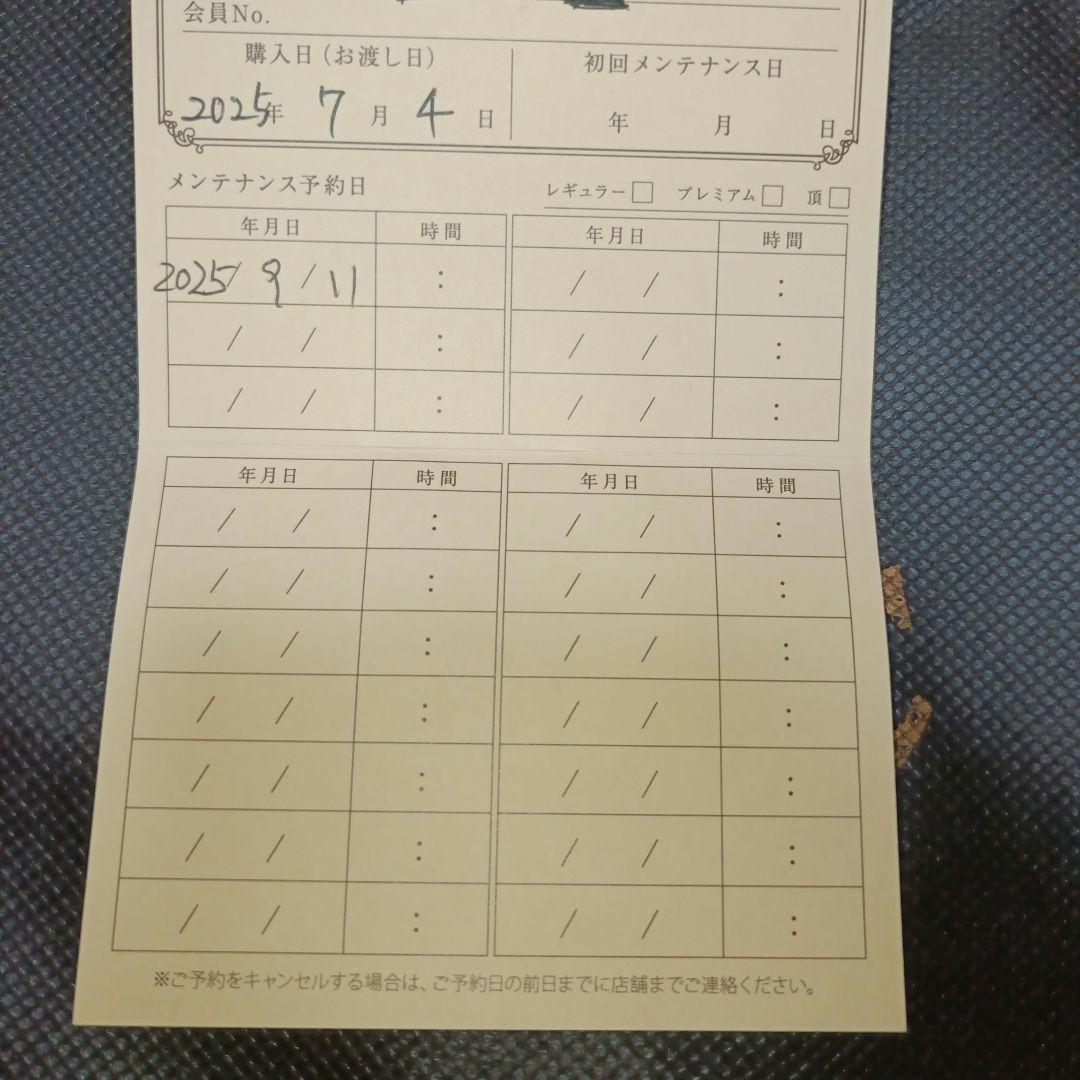 会員No.
購入日(お渡し日) 初回メンテナンス日
2025年 7月 4日 年 月 日
メンテナンス予約日 レギュラー□ プレミアム□ 頂□
年月日 時間 年月日 時間
2025/9/11 : / / :
/ / : / / :
/ / : / / :
年月日 時間 年月日 時間
/ / : / / :
/ / : / / :
/ / : / / :
/ / : / / :
/ / : / / :
/ / : / / :
/ / : / / :
※ご予約をキャンセルする場合は、ご予約日の前日までに店舗までご連絡ください。